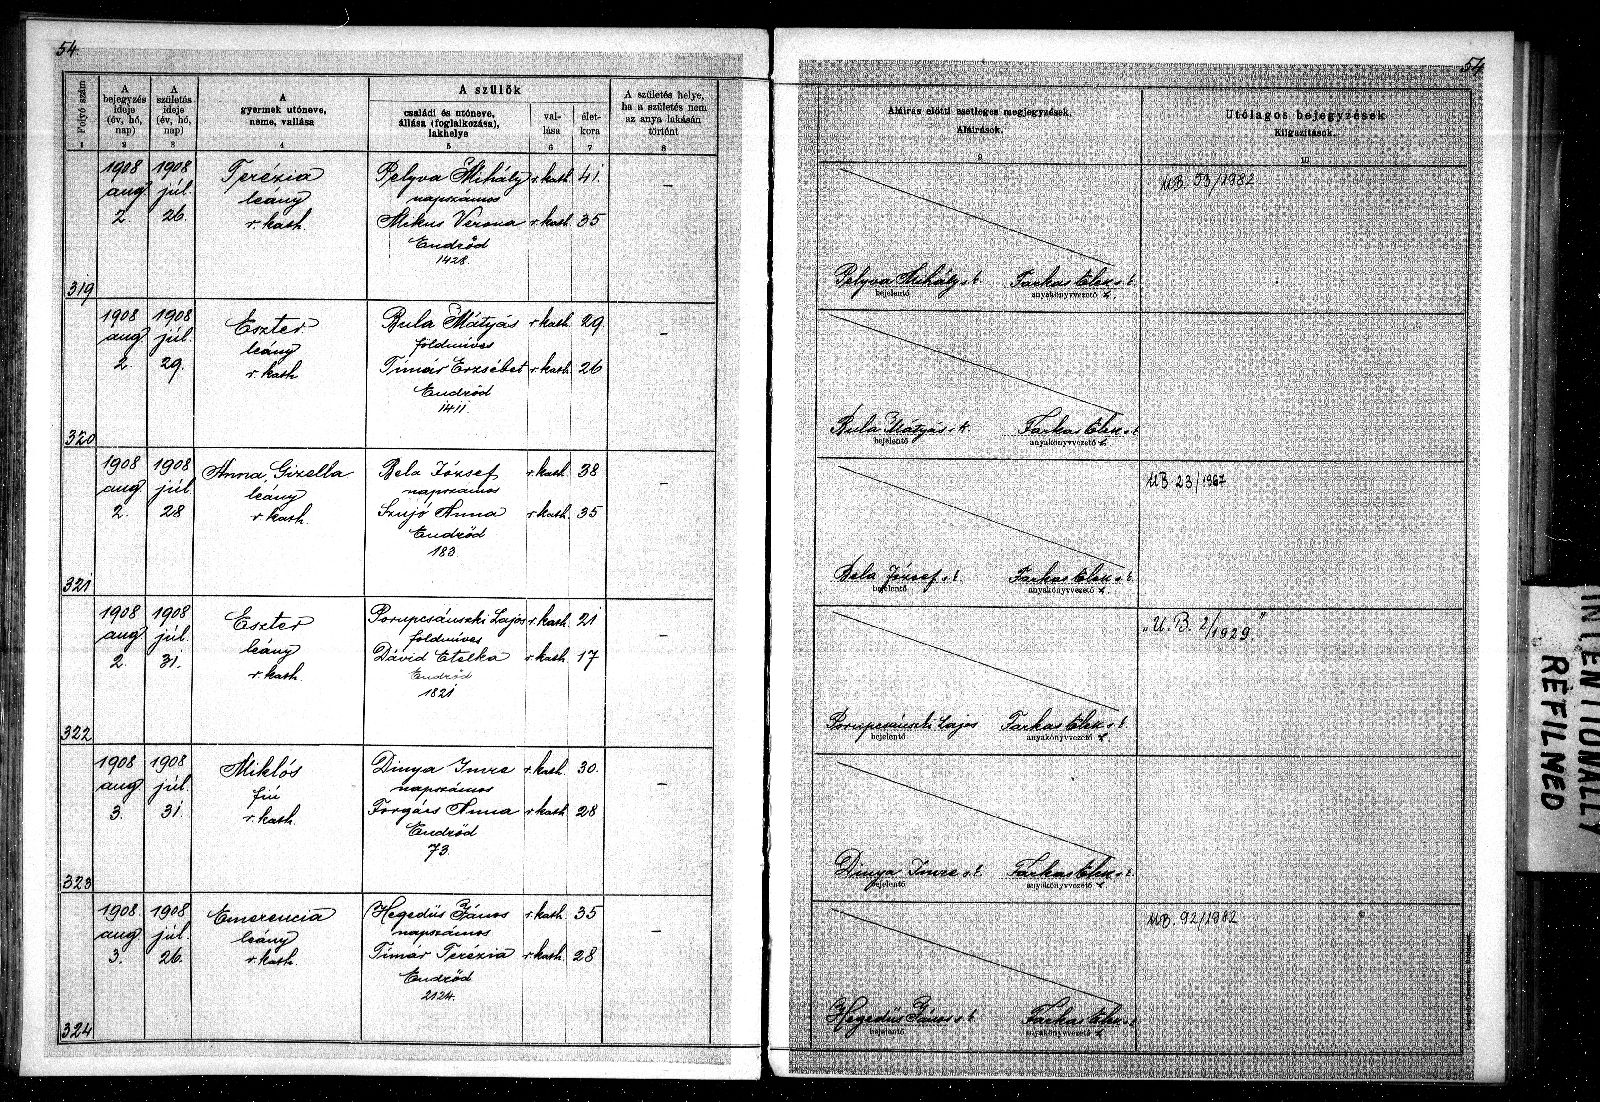 54
54
Folyó szám
A bejegyzés ideje (év, hó, nap)
A születés ideje (év, hó, nap)
A gyermek utóneve, neme, vallása
A szülők
családi és utóneve, állása (foglalkozása), lakhelye
vallása
életkora
A születés helye, ha a születés nem az anya lakásán történt
Aláírás előtti esetleges megjegyzések.
Aláírások.
Utólagos bejegyzések
Kiigazítások.
1 2 3 4 5 6 7 8 9 10
1908 1908 Terézia Pelyva Mihály r. kath. 41. –
aug júl. leány napszámos
2. 26. r. kath. Mikus Verona r. kath. 35
Endrőd
1428.
319
Pelyva Mihály s. k. Farkas Elek s. k.
bejelentő anyakönyvvezető
MB. 53/1982
1908 1908 Eszter Bula Mátyás r. kath. 29. –
aug júl. leány földmíves
2. 29. r. kath. Tímár Erzsébet r. kath. 26
Endrőd
1411.
320
Bula Mátyás s. k. Farkas Elek s. k.
bejelentő anyakönyvvezető
1908 1908 Anna, Gizella Bela József r. kath. 38 –
aug júl. leány napszámos
2. 28 r. kath. Szujó Anna r. kath. 35
Endrőd
183.
321
Bela József s. k. Farkas Elek s. k.
bejelentő anyakönyvvezető
MB 23/1967
1908 1908 Eszter Porupcsánszki Lajos r. kath. 21 –
aug júl. leány földmíves
2. 31. r. kath. Dávid Etelka r. kath. 17
Endrőd
1821
322
Porupcsánszki Lajos Farkas Elek s. k.
bejelentő anyakönyvvezető
„U. B. 2/1929."
1908 1908 Miklós Dinya Imre r. kath. 30. –
aug júl. fiú napszámos
3. 31. r. kath. Forgács Anna r. kath. 28
Endrőd
73.
323
Dinya Imre s. k. Farkas Elek s. k.
bejelentő anyakönyvvezető
1908 1908 Emerencia Hegedüs János r. kath. 35 –
aug júl. leány napszámos
3. 26. r. kath. Tímár Terézia r. kath. 28
Endrőd
2124.
324
Hegedüs János s. k. Farkas Elek s. k.
bejelentő anyakönyvvezető
MB. 92/1982
INTENTIONALLY
REFILMED